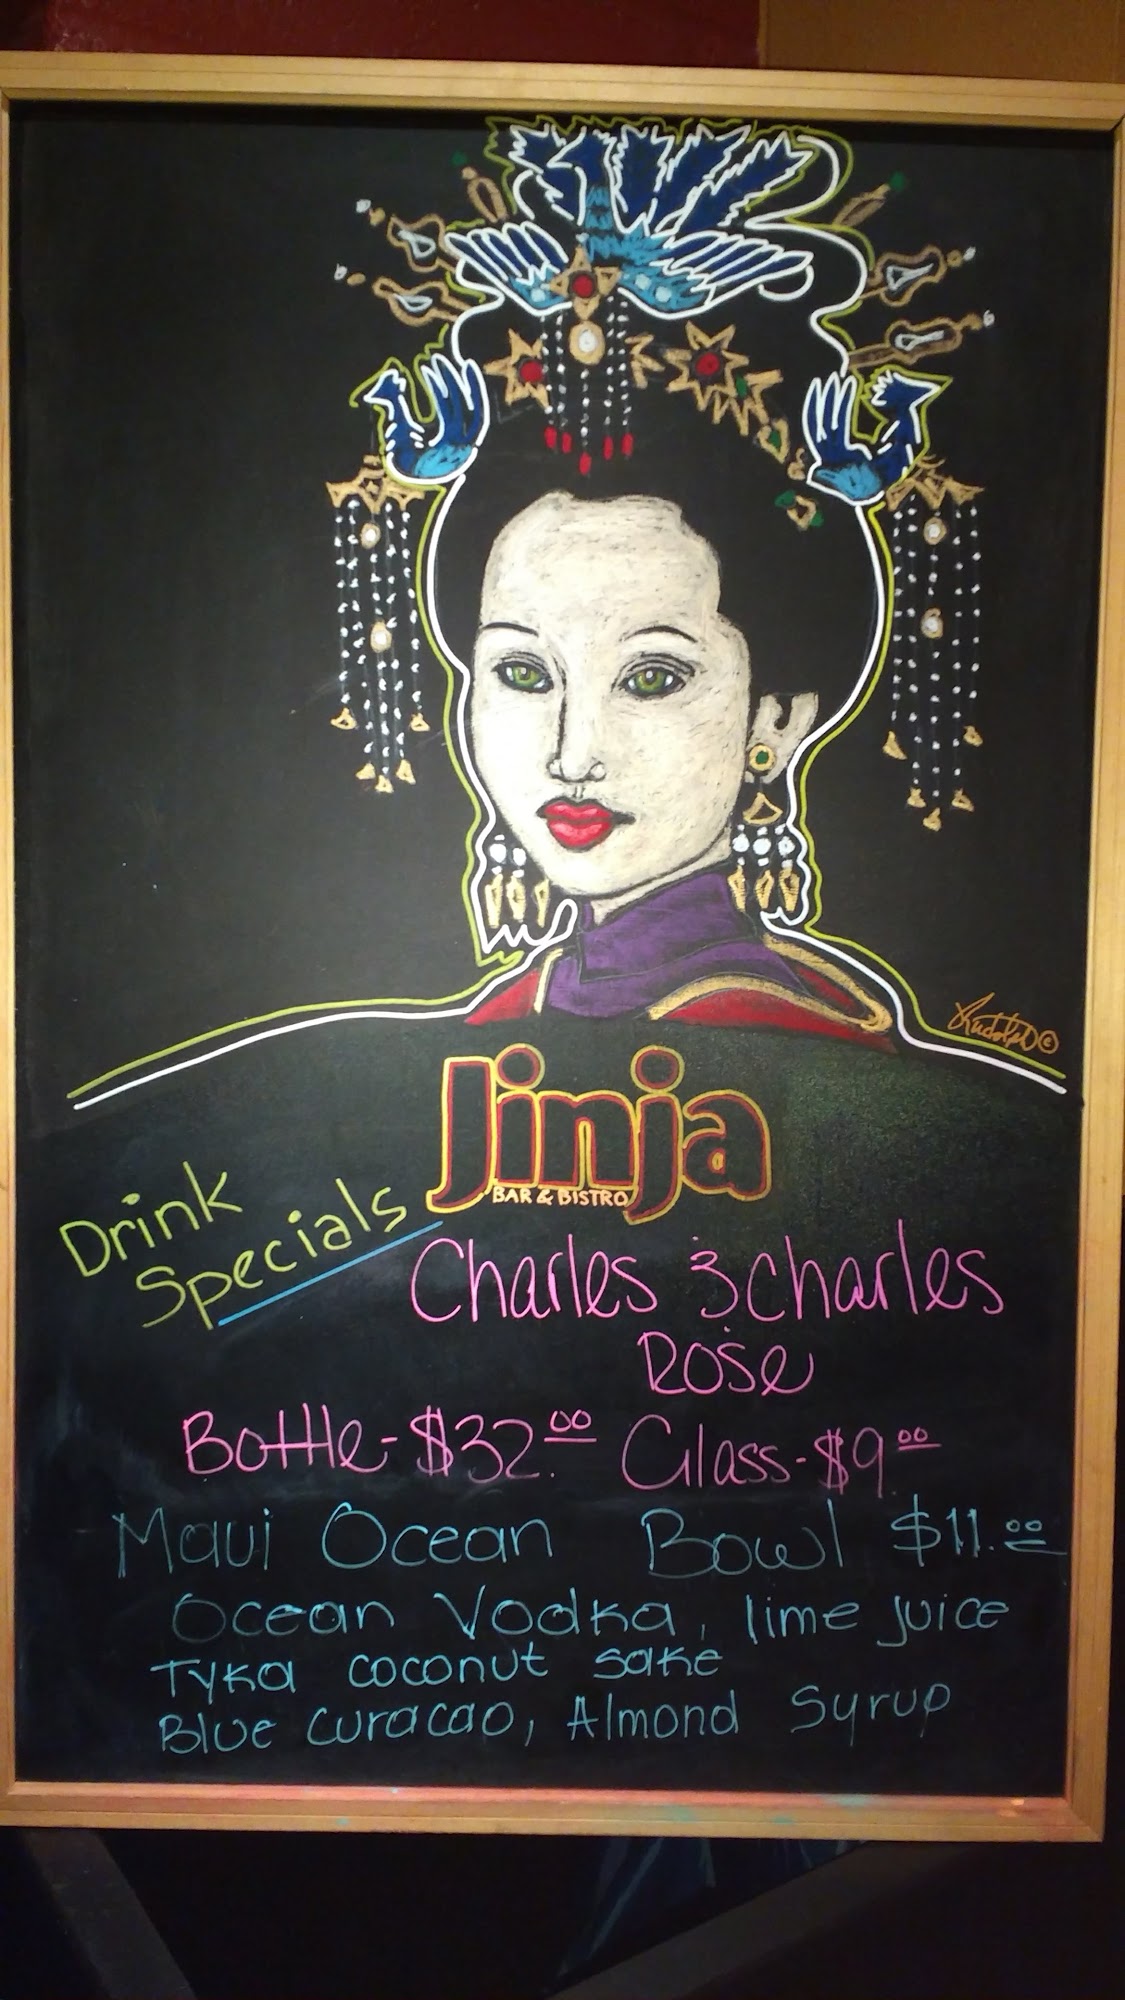 Rudolph ©
Jinja
BAR & BISTRO
Drink
Specials
Charles & charles
Rosė
Bottle-$32.00 Glass-$9.00
Maui Ocean Bowl $11.00
Ocean Vodka, lime juice
Tyka coconut sake
Blue curacao, Almond Syrup